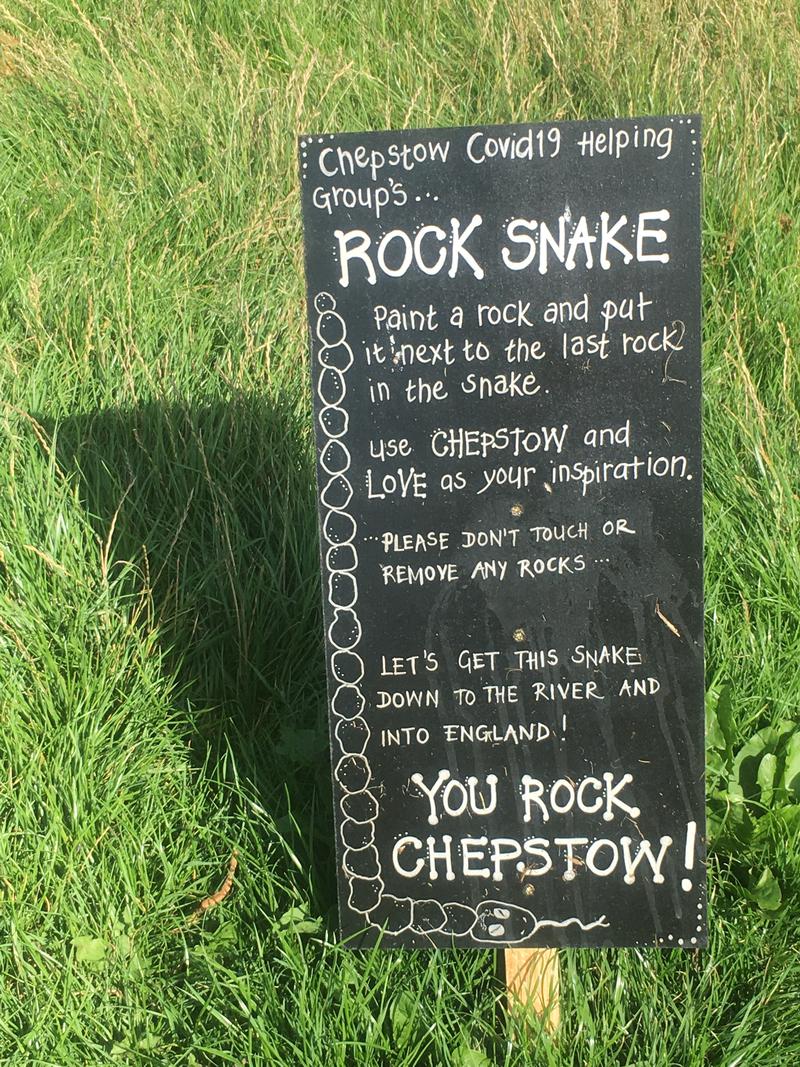 Chepstow Covid19 Helping
Group's...
ROCK SNAKE
Paint a rock and put
it next to the last rock
in the snake.
use CHEPSTOW and
LOVE as your inspiration.
...PLEASE DON'T TOUCH OR
REMOVE ANY ROCKS...
LET'S GET THIS SNAKE
DOWN TO THE RIVER AND
INTO ENGLAND!
YOU ROCK
CHEPSTOW!